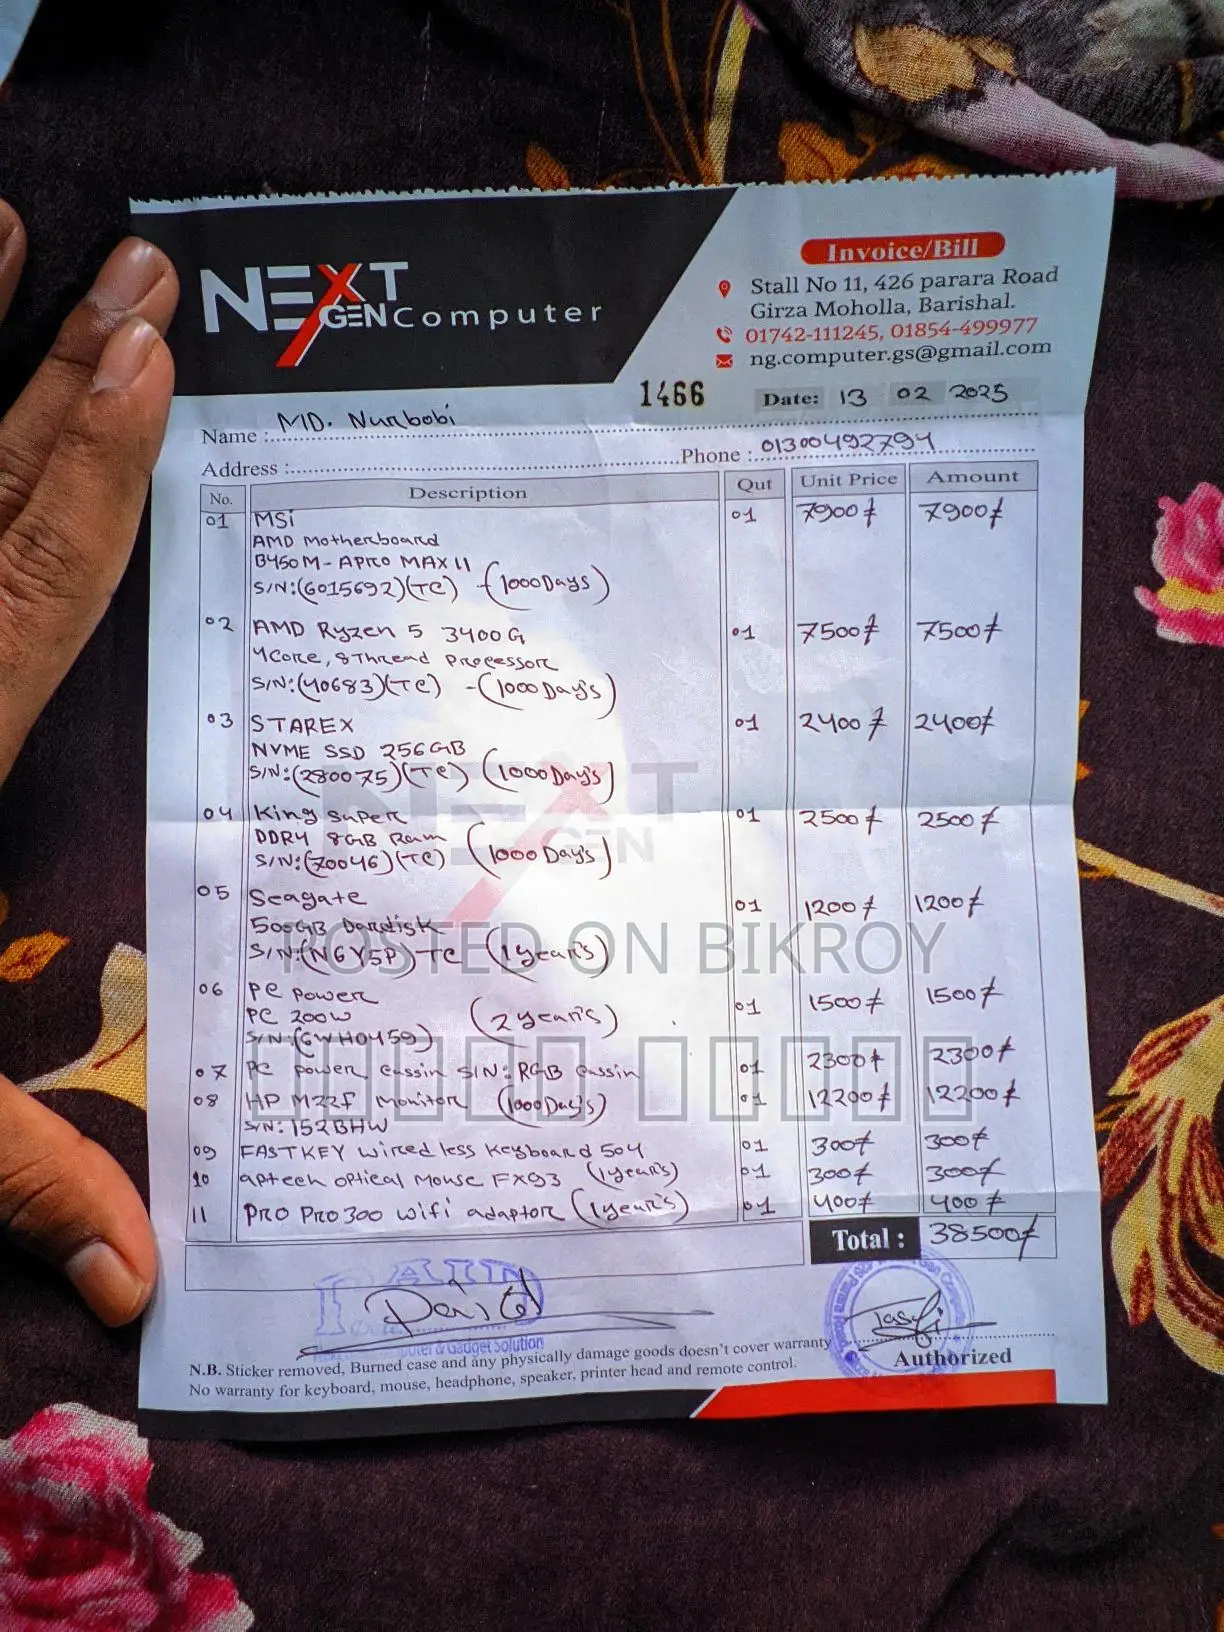 NEXT
GEN Computer
Invoice/Bill
Stall No 11, 426 parara Road
Girza Moholla, Barishal.
01742-111245, 01854-499977
ng.computer.gs@gmail.com
1466 Date: 13 02 2025
Name : MD. Nurbobi
Address : Phone : 01300492794
No. Description Qut Unit Price Amount
01 MSi 01 7900/= 7900/=
AMD Motherboard
B450M-APRO MAX II
S/N:(6015692)(TC) - (1000Days)
02 AMD Ryzen 5 3400G 01 7500/= 7500/=
4Core, 8Thread Processor
S/N:(40683)(TC) - (1000Day's)
03 STAREX 01 2400/= 2400/=
NVME SSD 256GB
S/N:(280075)(TC) (1000Day's)
04 King super 01 2500/= 2500/=
DDR4 8GB Ram
S/N:(70046)(TC) (1000Day's)
05 Seagate 01 1200/= 1200/=
500GB
S/N:(N6Y5P)-TC (1year's)
06 PC power 01 1500/= 1500/=
PC 200W (2year's)
S/N:(GWH0459)
07 PC power cassin S/N: RGB cassin 01 2300/= 2300/=
08 HP M22f monitor (1000Day's) 01 12200/= 12200/=
S/N: 152BHW
09 FASTKEY wired less keyboard 504 01 300/= 300/=
10 aptech optical Mouse FX93 (1year's) 01 300/= 300/=
11 PRO PRO300 wifi adaptor (1year's) 01 400/= 400/=
Total : 38500/=
NEXT
GEN
POSTED ON BIKROY
& Gadget Solution
Authorized
N.B. Sticker removed, Burned case and any physically damage goods doesn't cover warranty
No warranty for keyboard, mouse, headphone, speaker, printer head and remote control.